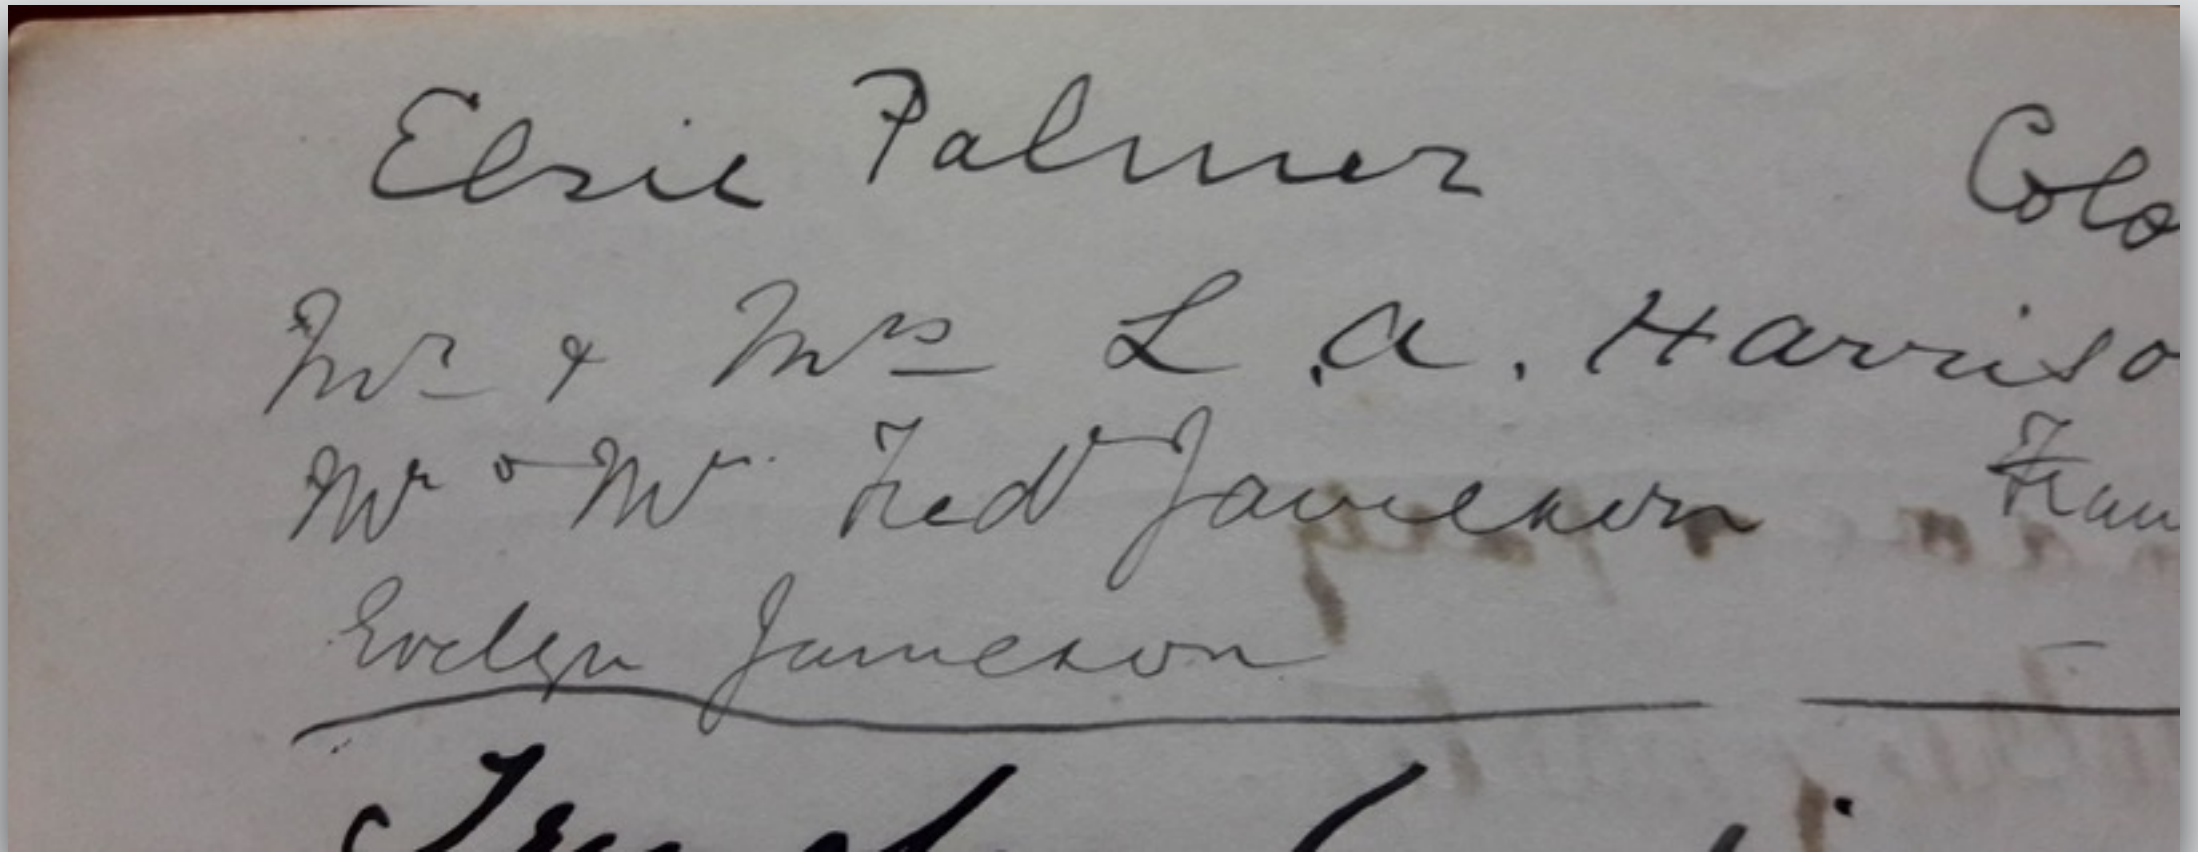 Elsie Palmer Colo
Mr & Mrs L. A. Harriso
Mr & Mr Fred Jameson
Evelyn Jameson